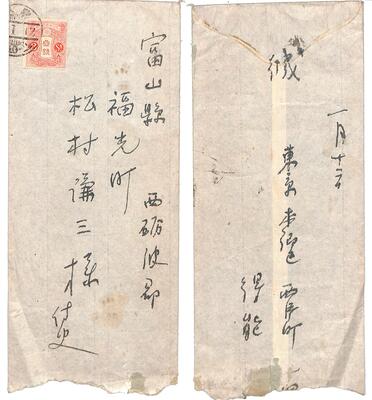 富山縣 西砺波郡
福光町
松村謙三様
侍史
緘
一月十三日
東京本郷区 西片町
得能